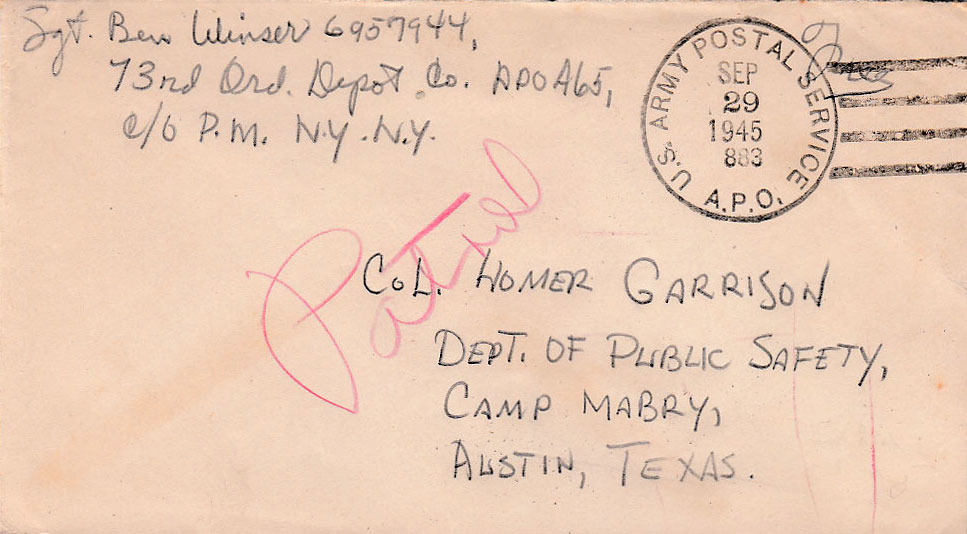 Sgt. Ben Winser 6957944,
73rd Ord. Depot Co. APO 465,
c/o P.M. N.Y. N.Y.
Free
U.S. ARMY POSTAL SERVICE
SEP
29
1945
883
A.P.O.
Patrol
COL. HOMER GARRISON
DEPT. OF PUBLIC SAFETY,
CAMP MABRY,
AUSTIN, TEXAS.